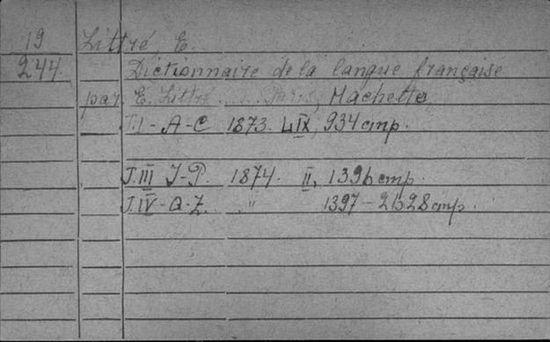 19
244
Littré, E.
Dictionnaire de la langue française
par E. Littré. Paris, Hachette
T.I - A-C 1873. LIX, 934 стр.
T.III I-P. 1874. II, 1396 стр.
T.IV - Q-Z. " 1397-2628 стр.